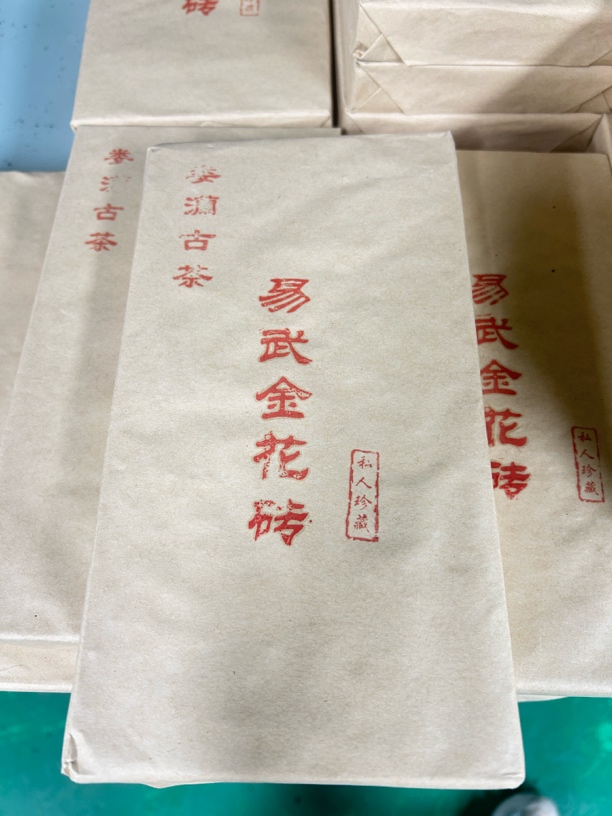 砖
古茶
古茶
易武金花砖
私人珍藏
易武金花砖
私人珍藏